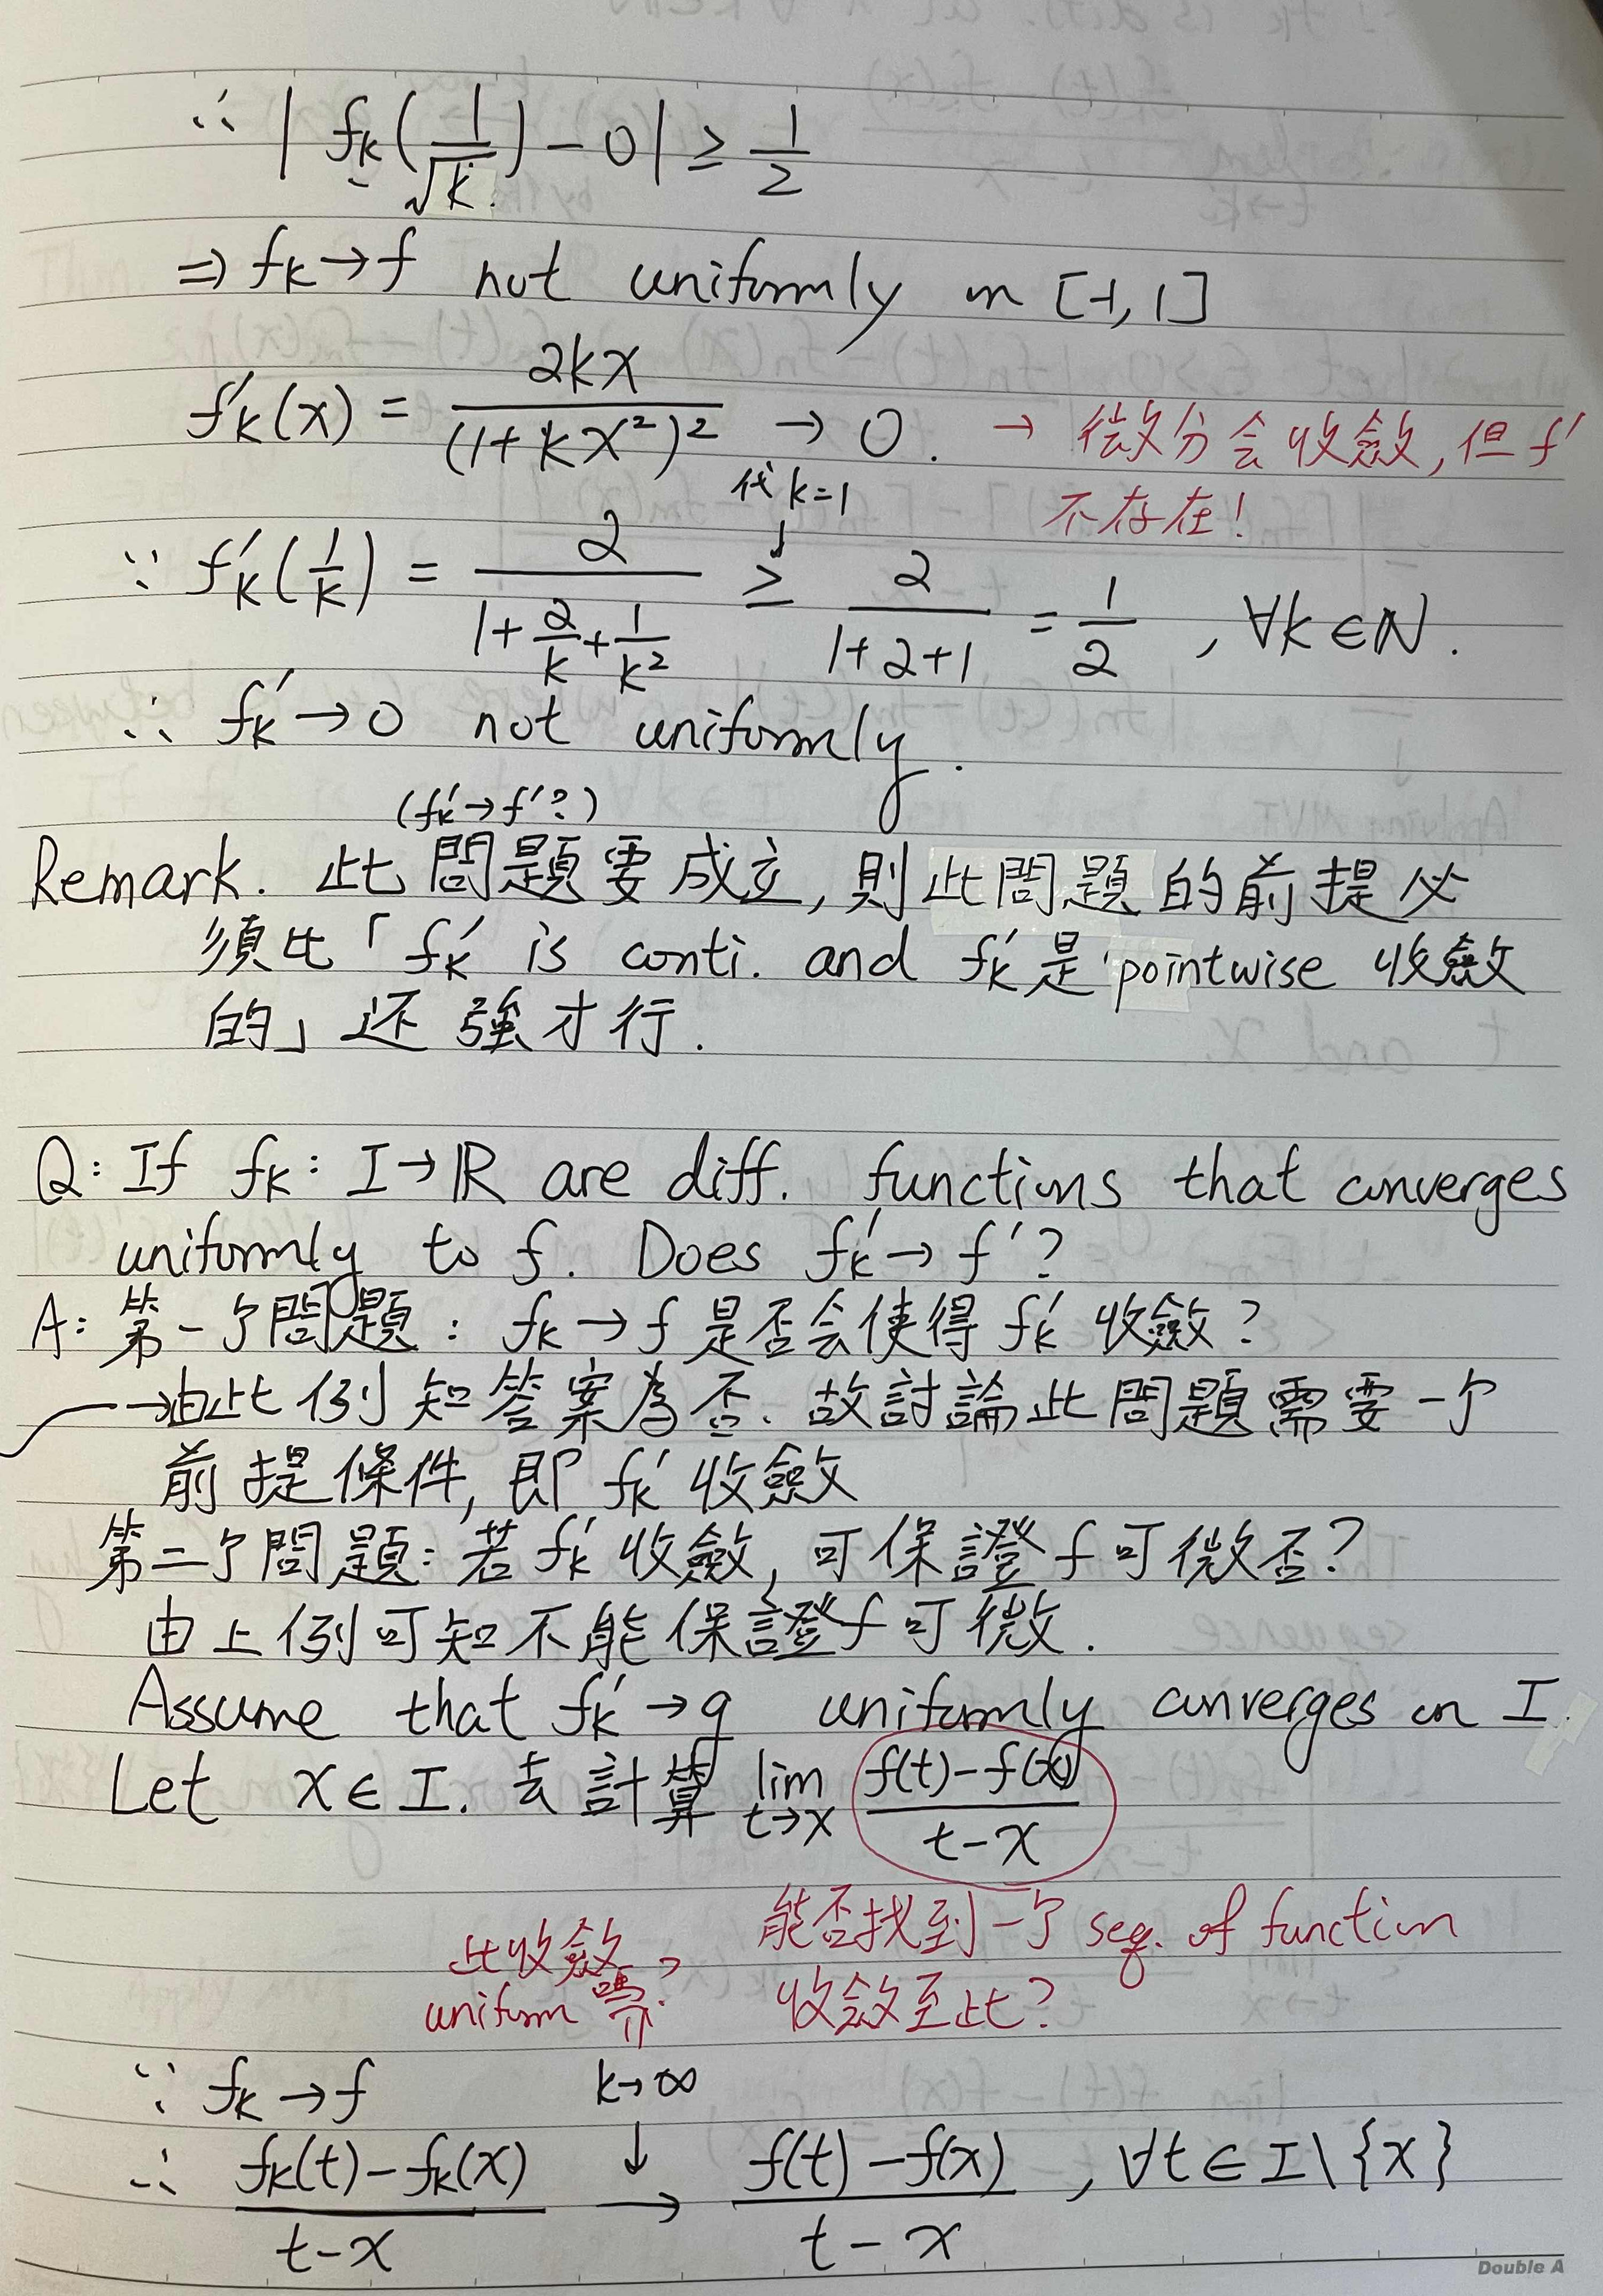 ∴ | fk(1/√k) − 0 | ≥ 1/2
⇒ fk → f not uniformly on [-1, 1]
f'k(x) = 2kx / (1+kx²)² → 0. → 微分会收斂, 但 f'
不存在!
代 k=1
↓
∵ f'k(1/k) = 2 / (1 + 2/k + 1/k²) ≥ 2 / (1+2+1) = 1/2 , ∀k ∈ N.
∴ f'k → 0 not uniformly.
(f'k → f'?)
Remark. 此問題要成立, 則此問題的前提必
須比「f'k is conti. and f'k 是 pointwise 收斂
的」还強才行.
Q: If fk : I → R are diff. functions that converges
uniformly to f. Does f'k → f'?
A: 第一个問題: fk → f 是否会使得 f'k 收斂?
→由此例知答案為否. 故討論此問題需要一个
前提條件, 即 f'k 收斂
第二个問題: 若 f'k 收斂, 可保證 f 可微否?
由上例可知不能保證 f 可微.
Assume that f'k → g uniformly converges on I.
Let x ∈ I. 去計算 lim t→x (f(t) − f(x)) / (t − x)
能否找到一个 seq. of function
收斂至此?
此收斂
uniform 嗎?
∵ fk → f
k → ∞
↓
∴ (fk(t) − fk(x)) / (t − x) → (f(t) − f(x)) / (t − x) , ∀t ∈ I \ {x}
Double A